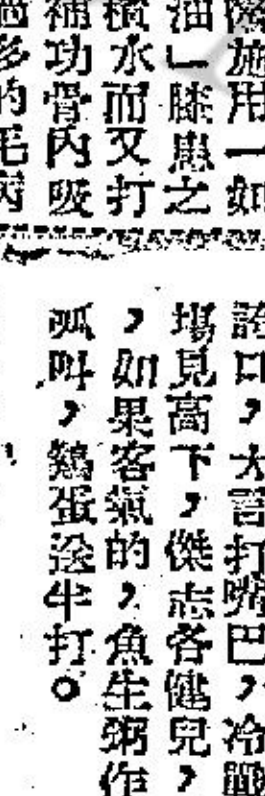 施用一如
油﹂膝患之
積水而又打
補功骨內吸
多的毛病
誇口，大言打嘴巴，冷戰
場見高下，傑志各健兒，
，如果客氣的，魚生粥作
孤叫，鷄蛋送牛打。